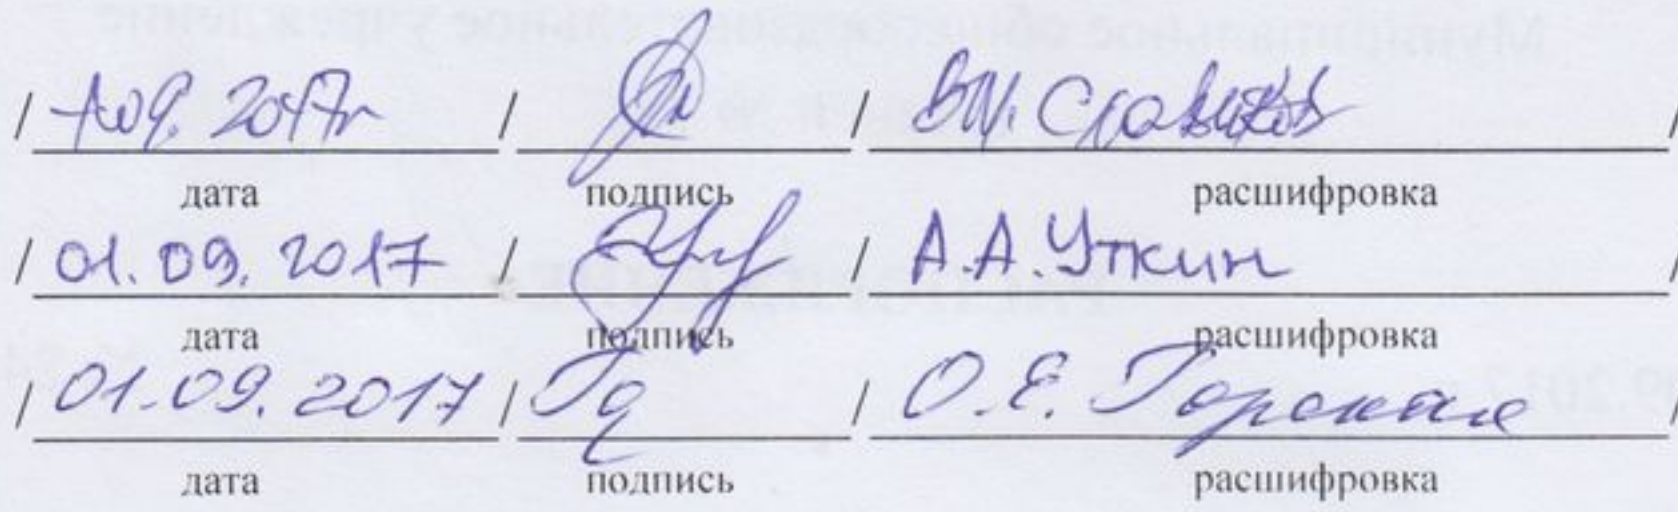 / 1.09.2017г / / В.И. /
дата подпись расшифровка
/ 01.09.2017 / / А.А.Уткин /
дата подпись расшифровка
/ 01.09.2017 / / О.Е. /
дата подпись расшифровка